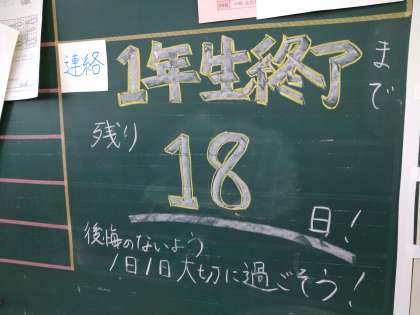 連絡
1年生終了まで
残り
18
日!
後悔のないよう
1日1日大切に過ごそう!